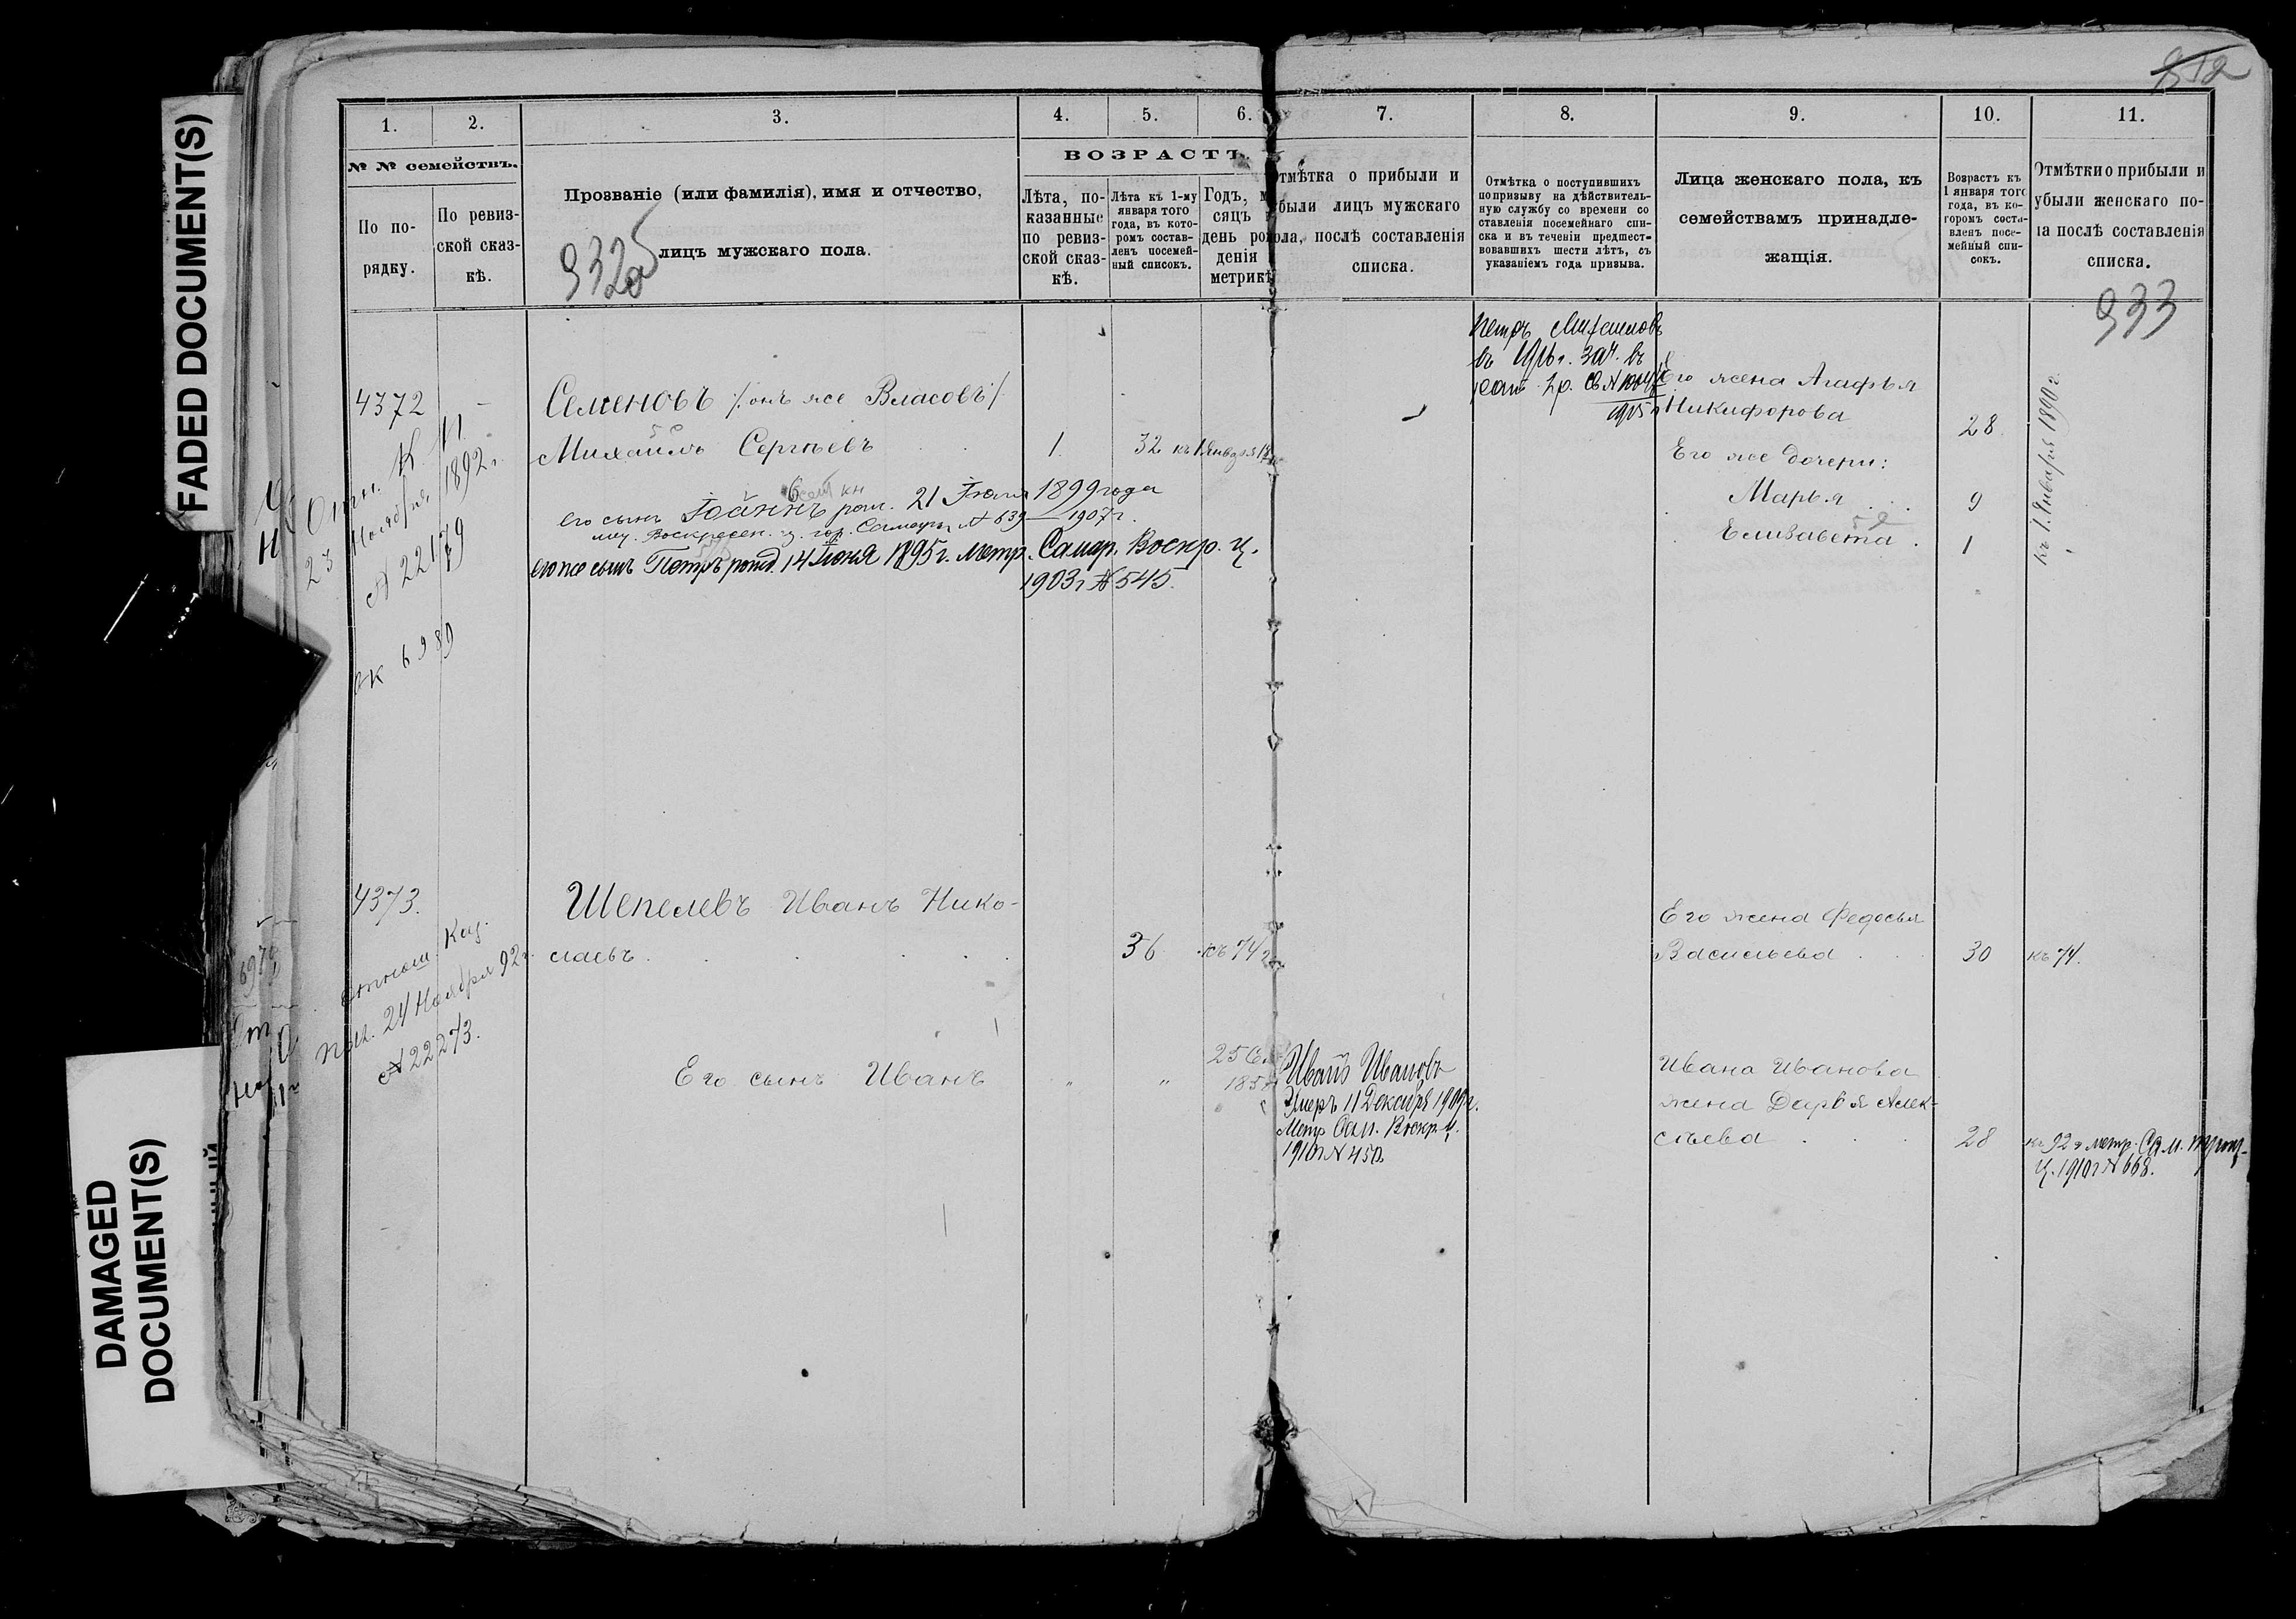 FADED DOCUMENT(S)
DAMAGED
DOCUMENT(S)
812
1.
2.
3.
4.
5.
6.
7.
8.
9.
10.
11.
№ № семействъ.
По по-
рядку.
По ревиз-
ской сказ-
кѣ.
Прозваніе (или фамилія), имя и отчество,
лицъ мужскаго пола.
932
ВОЗРАСТЪ.
Лѣта, по-
казанные
по ревиз-
ской сказ-
кѣ.
Лѣта къ 1-му
января того
года, въ кото-
ромъ состав-
ленъ посемей-
ный списокъ.
Годъ, м
сяцъ
день ро
денія
метрикѣ
тмѣтка о прибыли и
были лицъ мужскаго
ола, послѣ составленія
списка.
Отмѣтка о поступившихъ
по призыву на дѣйствитель-
ную службу со времени со
ставленія посемейнаго спи-
ска и въ теченіи предшест-
вовавшихъ шести лѣтъ, съ
указаніемъ года призыва.
Лица женскаго пола, къ
семействамъ принадле-
жащія.
Возрастъ къ
1 января того
года, въ ко-
торомъ соста-
вленъ посе-
мейный спи-
сокъ.
Отмѣтки о прибыли и
убыли женскаго по-
ла послѣ составленія
списка.
933
4372
Отн. К. П.
23 Ноября 1892 г.
№ 22179
6989
Семеновъ /: онъ же Власовъ :/
Михаилъ Сергѣевъ
1.
32
къ 1 Января 18
его сынъ Іоаннъ рож. 21 Іюля 1899 года
Воскресен. ц. гор. Самары № 639 1907 г.
его же сынъ Петръ рожд. 14 Іюня 1895 г. метр. Самар. Воскр. ц.
1903 г № 545.
Петръ Михаиловъ
въ 1916 г. зач. въ
1915 г
Его жена Агафья
Никифорова
28
Его же дочери:
Марья
9
Елизавета
1
къ 1 Января 1890 г.
4373.
Отнош. Каз.
Пал. 24 Ноября 92 г.
№ 22273.
Шепелевъ Иванъ Нико-
лаевъ
36
къ 74 г
Его жена Федосья
Васильева
30
къ 74.
Его сынъ Иванъ
"
"
Иванъ Ивановъ
Умеръ 11 Декабря 1909 г.
Метр Сам. Воскр. ц.
1910 г № 450.
Ивана Иванова
жена Дарья Алек-
сѣева
28
къ 92 г метр. Сам. Троиц-
ц. 1910 г № 668.